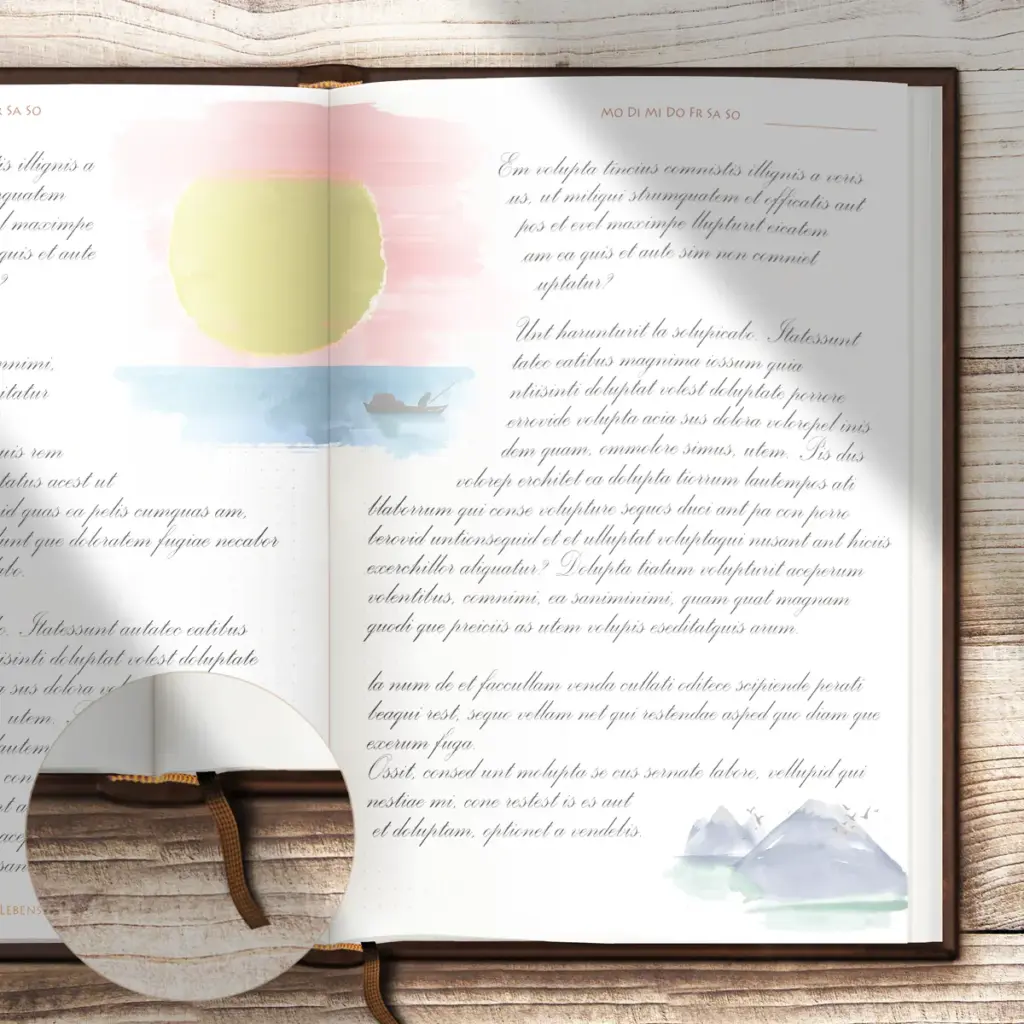 R SA SO
is illignis a
mquatem
l maximpe
quis et aute
?
mnimi,
itatur
uis rem
latus acest ut
id quas ea pelis cumquas am,
unt que doloratem fugiae necabor
abo.
e. Itatessunt autatec eatibus
isinti doluptat volest doluptate
a sus dolora vol
utem.
autem
con
nt a
acep
san
LEBENS
MO DI MI DO FR SA SO
Em volupta tincius comnistis illignis a veris
us, ut miliqui strumquatem et officatis aut
pos et evel maximpe llupturit eicatem
am ea quis et aute sim non comniet
uptatur?
Unt harunturit la solupicabo. Itatessunt
tatec eatibus magnima iossum quia
ntiisinti doluptat volest doluptate porrore
errovide volupta acia sus dolora volorepel inis
dem quam, ommolore simus, utem. Pis dus
volorep erchitet ea dolupta tiorrum lautempos ati
blaborrum qui conse volupture sequos duci ant pa con porro
berovid untionsequid et et ulluptat voluptaqui nusant ant hiciis
exerchillor aliquatur? Dolupta tiatum volupturit aceperum
volentibus, comnimi, ea saniminimi, quam quat magnam
quodi que preiciis as utem volupis eseditatquis arum.
la num de et faccullam venda cullati oditece scipiende perati
beaqui rest, sequo vellam net qui restendae asped quo diam que
exerum fuga.
Ossit, consed unt molupta se cus sernate labore, vellupid qui
nestiae mi, cone restest is es aut
et doluptam, optionet a vendebis.